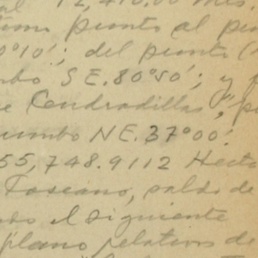 al 12,410.00 mts.
timo punto al pun
0°10'; del punto (
mbo SE.80°50'; y p
e Cendradillas, p
rumbo NE.37°00'.
55,748.9112 Hécta
Toscano, salds de
bo el siguiente
plano relativo de